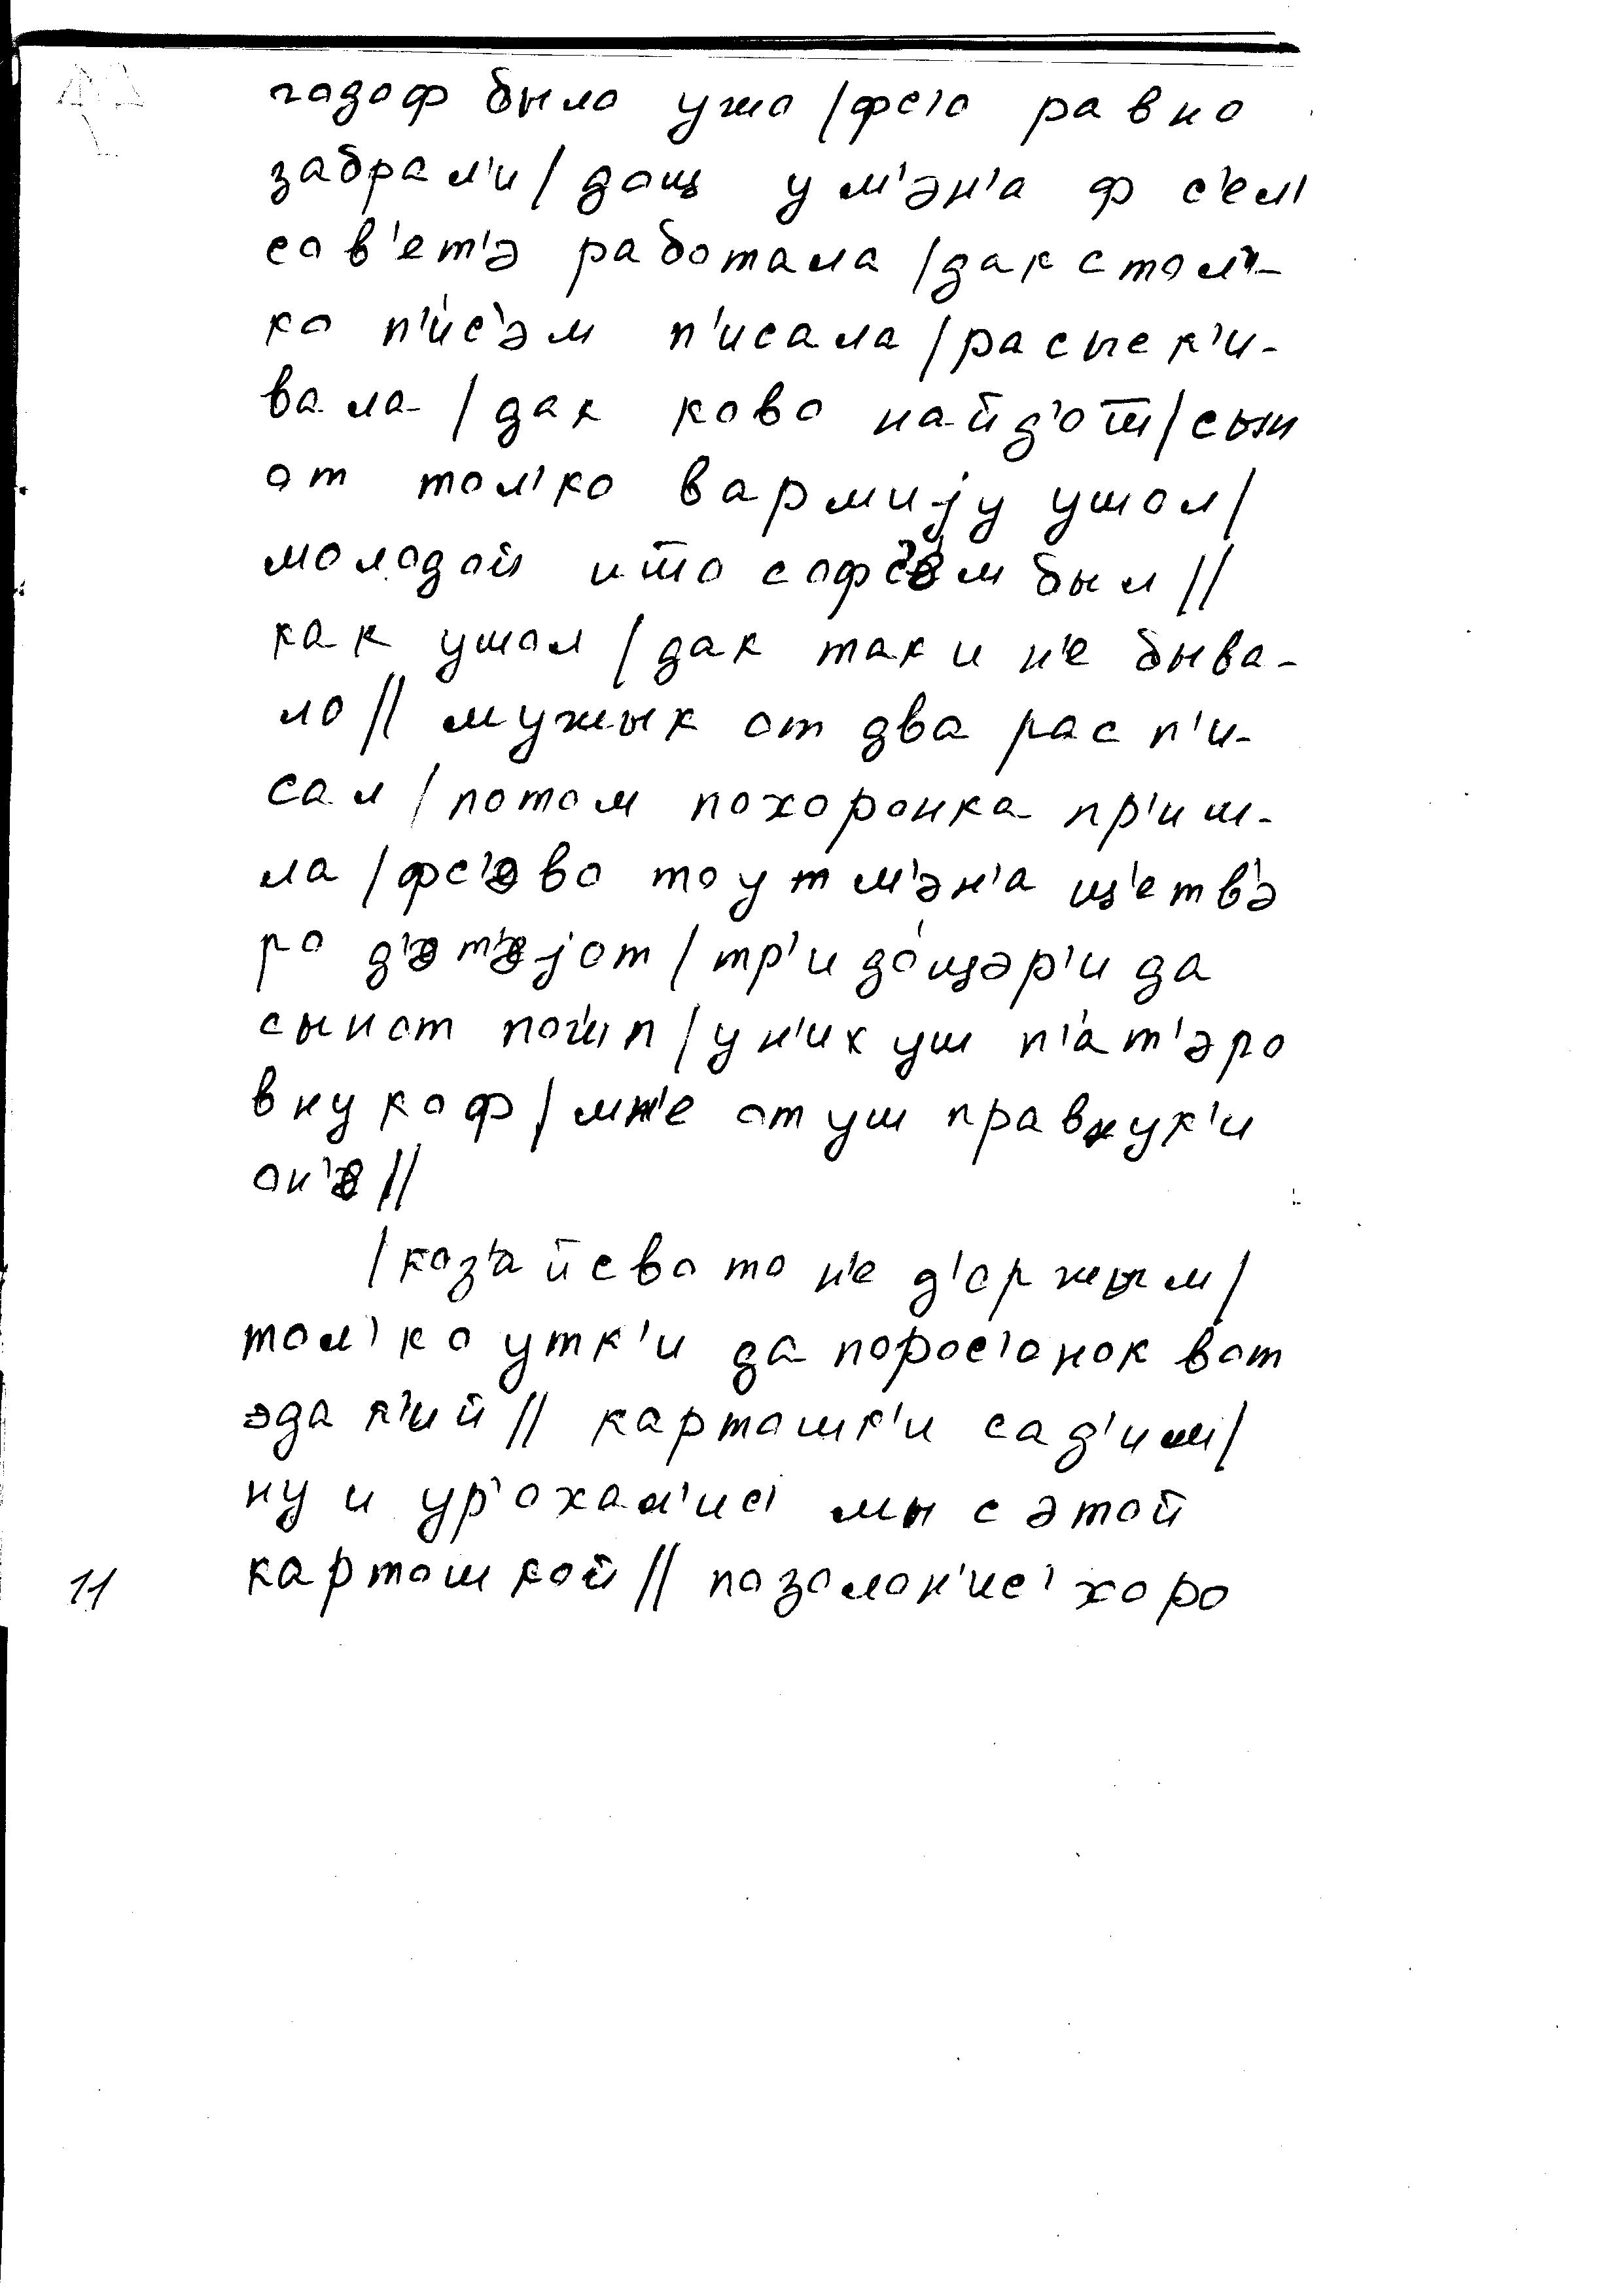 годоф было ужо /фс'о равно
забрал'и / дощ у м'эн'а ф с'ел'
сов'ет'э работала /дак стол'-
ко п'ис'эм п'исала /расыск'и-
вала / дак ково найд'ош /сын
от тол'ко вармиjу ушол /
молодой ишо софс'эм был //
как ушол / дак так и н'е быва-
ло // мужык от два рас п'и-
сал / потом похоронка пр'иш-
ла / фс'эво то ут м'эн'а щ'етв'э
ро д'эт'эjот / тр'и до́щэр'и да
сынот пог'ип / у н'их уш п'а́т'эро
внукоф / мн'е от уш правнук'и
он'э //
/хоз'айсвото н'е д'оржым /
тол'ко утк'и да порос'онок вот
эдак'ий // картошк'и сад'им /
ну и ур'охал'ис' мы с этой
картошкой // позолон'ис' хоро
11